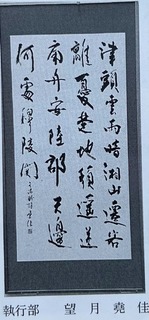 津頭雲雨暗湘山遷客
離憂楚地顏遥送
扁舟安陸郡天邊
何處穆陵關
執行部 望月堯佳